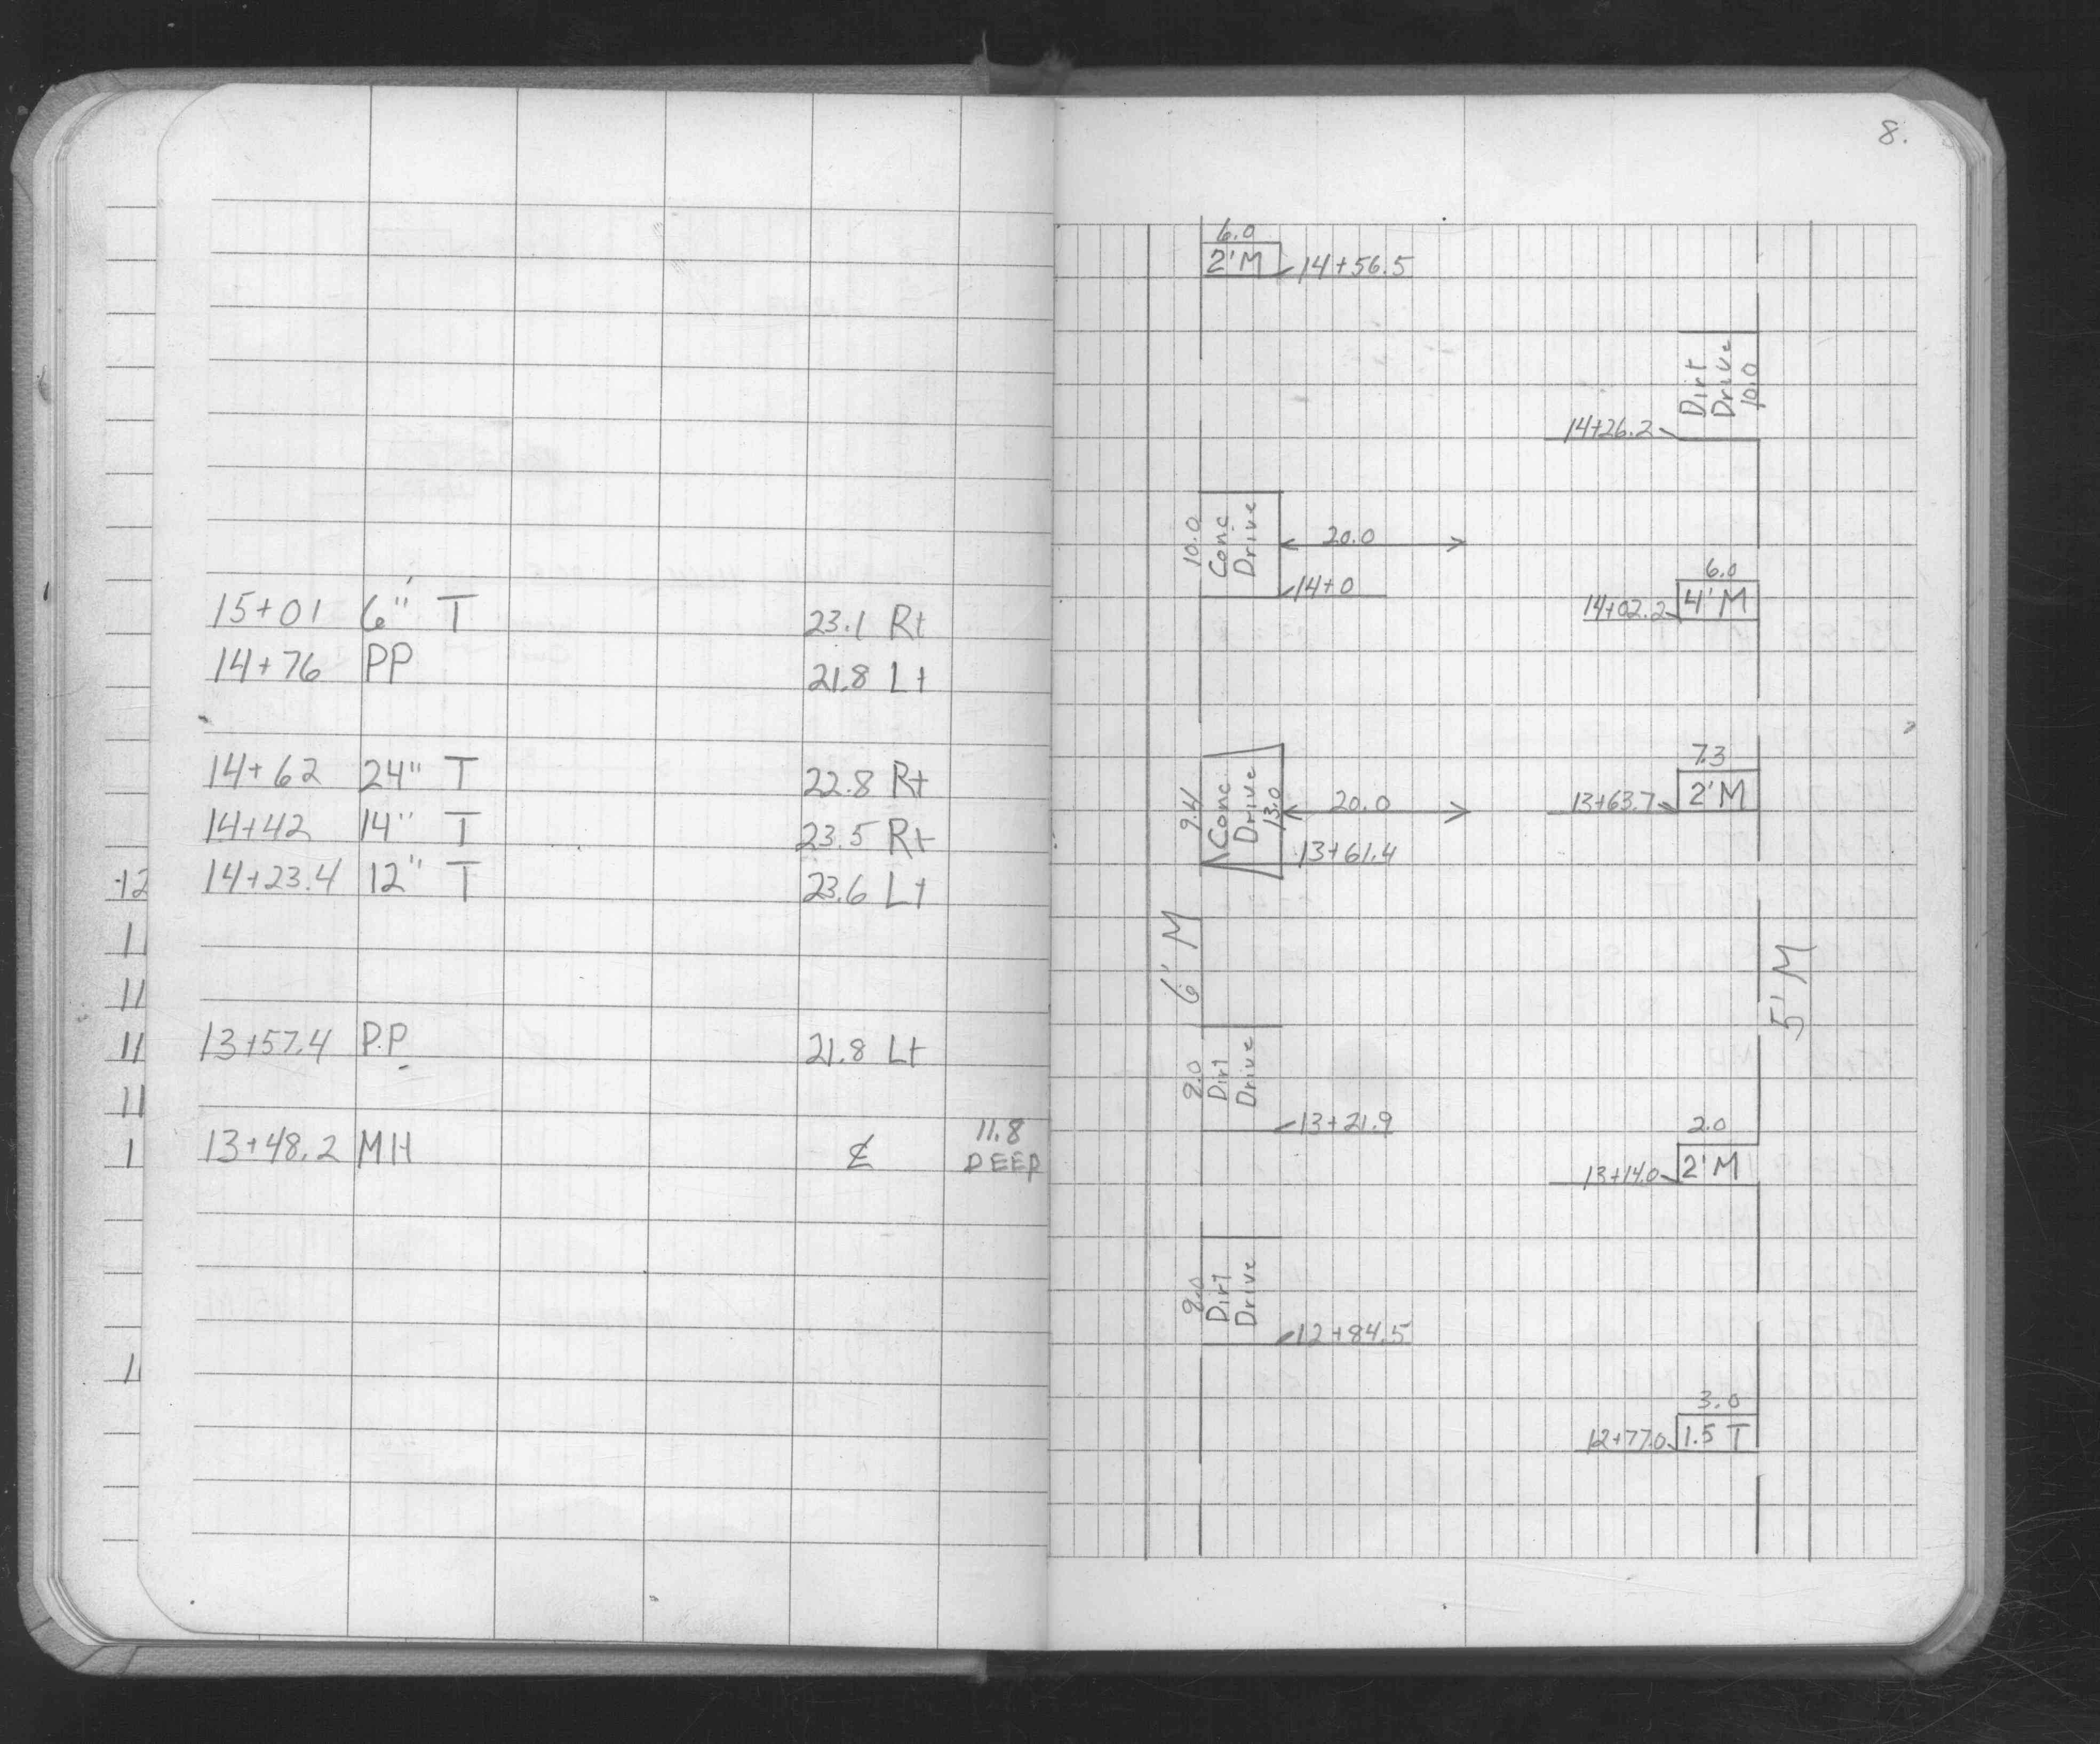 15+01 6" T 23.1 Rt
14+76 PP 21.8 Lt
14+62 24" T 22.8 Rt
14+42 14" T 23.5 Rt
14+23.4 12" T 23.6 Lt
13+57.4 P.P. 21.8 Lt
11.8
13+48.2 MH ℄ DEEP
8.
6.0
2'M 14+56.5
Dirt
Drive
10.0
14+26.2
10.0
Conc
Drive
20.0
14+0
6.0
14+02.2 4'M
9.4
Conc
Drive
13.0
20.0
13+61.4
7.3
13+63.7 2'M
6' M
5' M
Dirt
Drive
13+21.9
2.0
13+14.0 2'M
Dirt
Drive
12+84.5
3.0
12+77.0 1.5 T